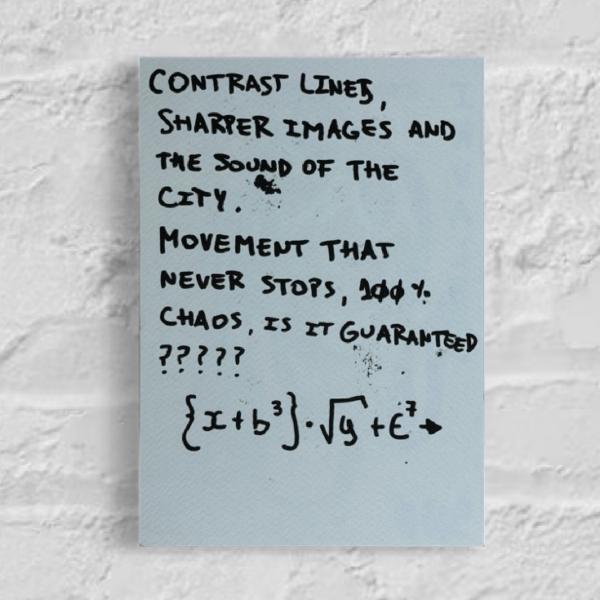 CONTRAST LINES,
SHARPER IMAGES AND
THE SOUND OF THE
CITY.
MOVEMENT THAT
NEVER STOPS, 100%
CHAOS, IS IT GUARANTEED
?????
{x+b³}·√y+€⁷→